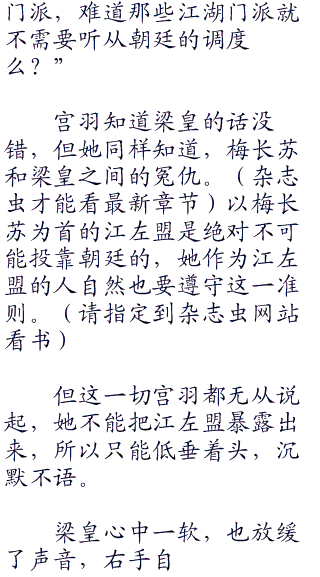 门派，难道那些江湖门派就
不需要听从朝廷的调度
么？”
宫羽知道梁皇的话没
错，但她同样知道，梅长苏
和梁皇之间的冤仇。（杂志
虫才能看最新章节）以梅长
苏为首的江左盟是绝对不可
能投靠朝廷的，她作为江左
盟的人自然也要遵守这一准
则。（请指定到杂志虫网站
看书）
但这一切宫羽都无从说
起，她不能把江左盟暴露出
来，所以只能低垂着头，沉
默不语。
梁皇心中一软，也放缓
了声音，右手自